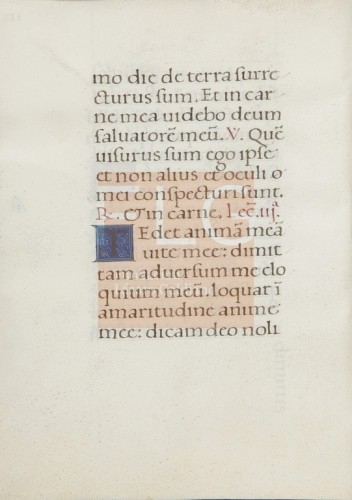 mo die de terra surre
cturus sum. Et in car
ne mea uidebo deum
saluatorē meū. V. Quē
uisurus sum ego ipse
et non alius et oculi o
mei conspecturi sunt.
R. et in carne. Lec. iij.
Tedet animā meā
uite mee: dimit
tam aduersum me elo
quium meū. loquar ī
amaritudine anime
mee: dicam deo noli